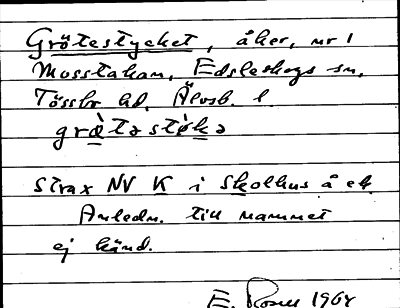 Grötestycket, åker, nr 1
Musstakan, Edsleskogs sn,
Tössbo hd, Älvsb. l
grø̀təstỳkə
Strax NV K i Skolhus å ek
Anledn. till namnet
ej känd.
E. Rosell 1968